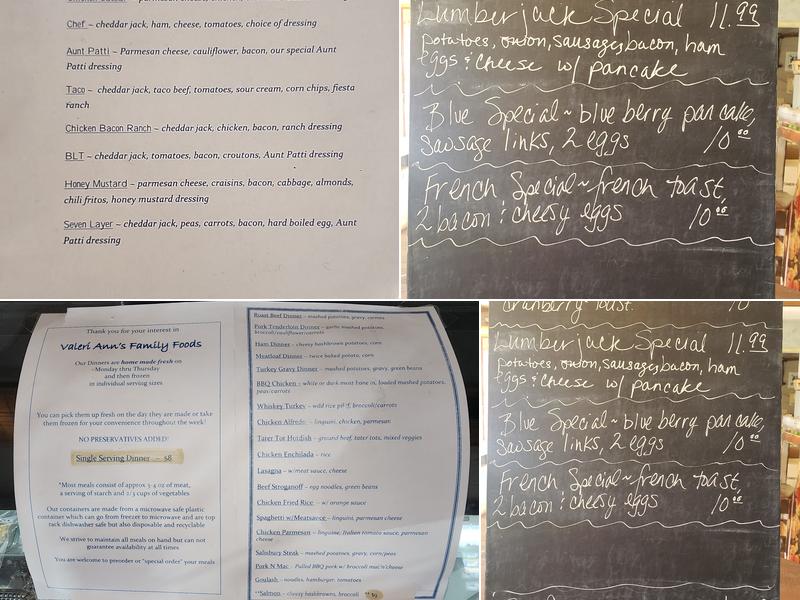 Chef ~ cheddar jack, ham, cheese, tomatoes, choice of dressing
Aunt Patti ~ Parmesan cheese, cauliflower, bacon, our special Aunt
Patti dressing
Taco ~ cheddar jack, taco beef, tomatoes, sour cream, corn chips, fiesta
ranch
Chicken Bacon Ranch ~ cheddar jack, chicken, bacon, ranch dressing
BLT ~ cheddar jack, tomatoes, bacon, croutons, Aunt Patti dressing
Honey Mustard ~ parmesan cheese, craisins, bacon, cabbage, almonds,
chili fritos, honey mustard dressing
Seven Layer ~ cheddar jack, peas, carrots, bacon, hard boiled egg, Aunt
Patti dressing
Lumberjack Special 11.99
potatoes, onion, sausage, bacon, ham
eggs & cheese w/ pancake
Blue Special ~ blue berry pancake,
sausage links, 2 eggs 10.00
French Special ~ french toast,
2 bacon & cheesy eggs 10.00
Thank you for your interest in
Valeri Ann's Family Foods
Our Dinners are home made fresh on
~Monday thru Thursday
and then frozen
in individual serving sizes
You can pick them up fresh on the day they are made or take
them frozen for your convenience throughout the week!
NO PRESERVATIVES ADDED!
Single Serving Dinner ~ $8
*Most meals consist of approx 3-4 oz of meat,
a serving of starch and 2/3 cups of vegetables
Our containers are made from a microwave safe plastic
container which can go from freezer to microwave and are top
rack dishwasher safe but also disposable and recyclable
We strive to maintain all meals on hand but can not
guarantee availability at all times
You are welcome to preorder or "special order" your meals
Roast Beef Dinner ~ mashed potatoes, gravy, carrots
Pork Tenderloin Dinner ~ garlic mashed potatoes,
broccoli/cauliflower/carrots
Ham Dinner ~ cheesy hashbrown potatoes, corn
Meatloaf Dinner ~ twice baked potato, corn
Turkey Gravy Dinner ~ mashed potatoes, gravy, green beans
BBQ Chicken ~ white or dark meat bone in, loaded mashed potatoes,
peas/carrots
Whiskey Turkey ~ wild rice pilaf, broccoli/carrots
Chicken Alfredo ~ linguini, chicken, parmesan
Tater Tot Hotdish ~ ground beef, tater tots, mixed veggies
Chicken Enchilada ~ rice
Lasagna ~ w/meat sauce, cheese
Beef Stroganoff ~ egg noodles, green beans
Chicken Fried Rice ~ w/ orange sauce
Spaghetti w/Meatsauce ~ linguini, parmesan cheese
Chicken Parmesan ~ linguine, Italian tomato sauce, parmesan
cheese
Salisbury Steak ~ mashed potatoes, gravy, corn/peas
Pork N Mac ~ Pulled BBQ pork w/ broccoli mac'n'cheese
Goulash ~ noodles, hamburger, tomatoes
**Salmon ~ cheesy hashbrowns, broccoli
cranberry toast. 10
Lumberjack Special 11.99
potatoes, onion, sausage, bacon, ham
eggs & cheese w/ pancake
Blue Special ~ blue berry pancake,
sausage links, 2 eggs 10.00
French Special ~ french toast,
2 bacon & cheesy eggs 10.00